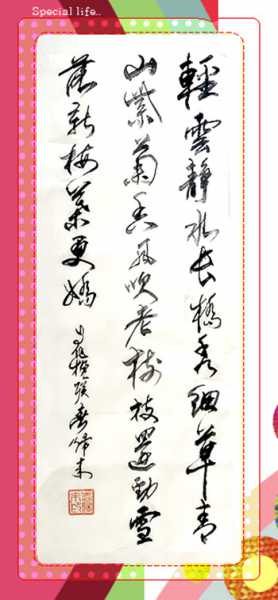 Special life..
輕雲靜水長橋秀細草青
山紫蘭香風吹老樹枝還勁雪
落新梅葉更嬌